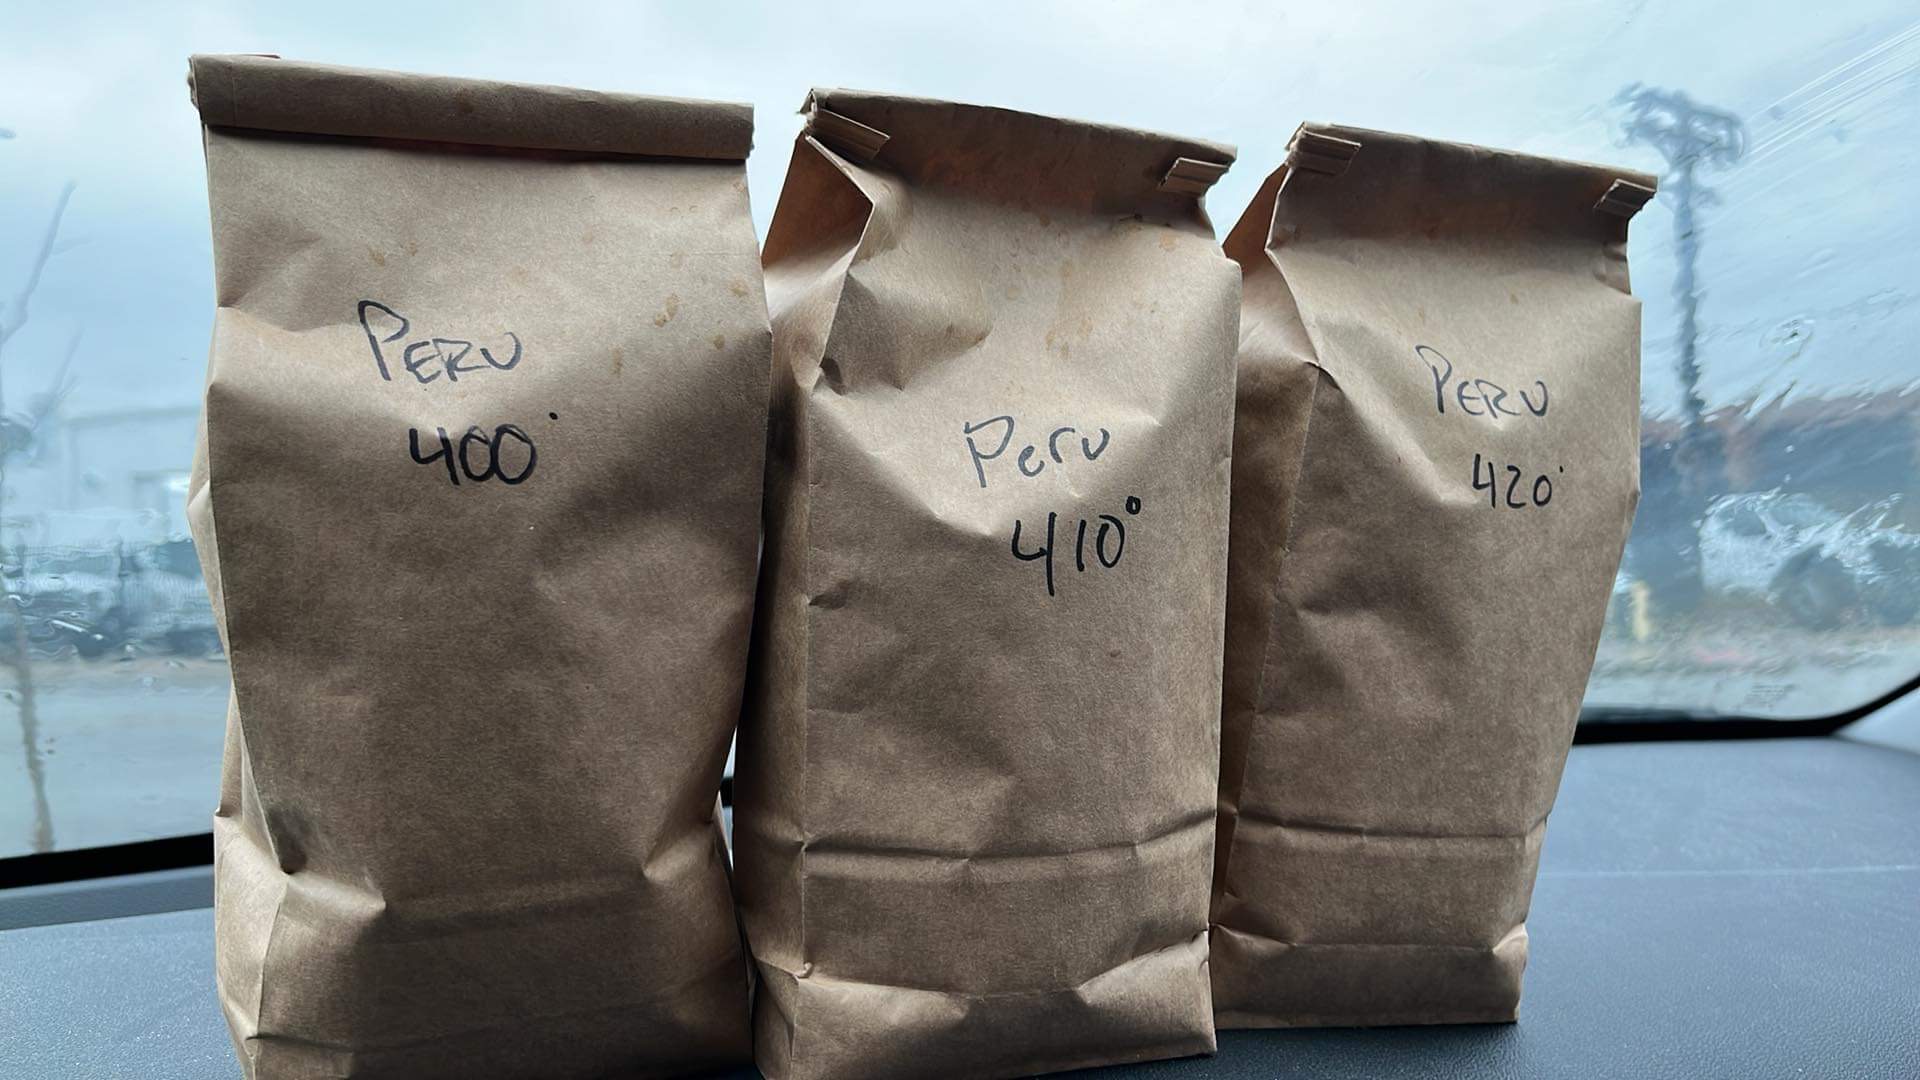 PERU
400°
Peru
410°
PERU
420°